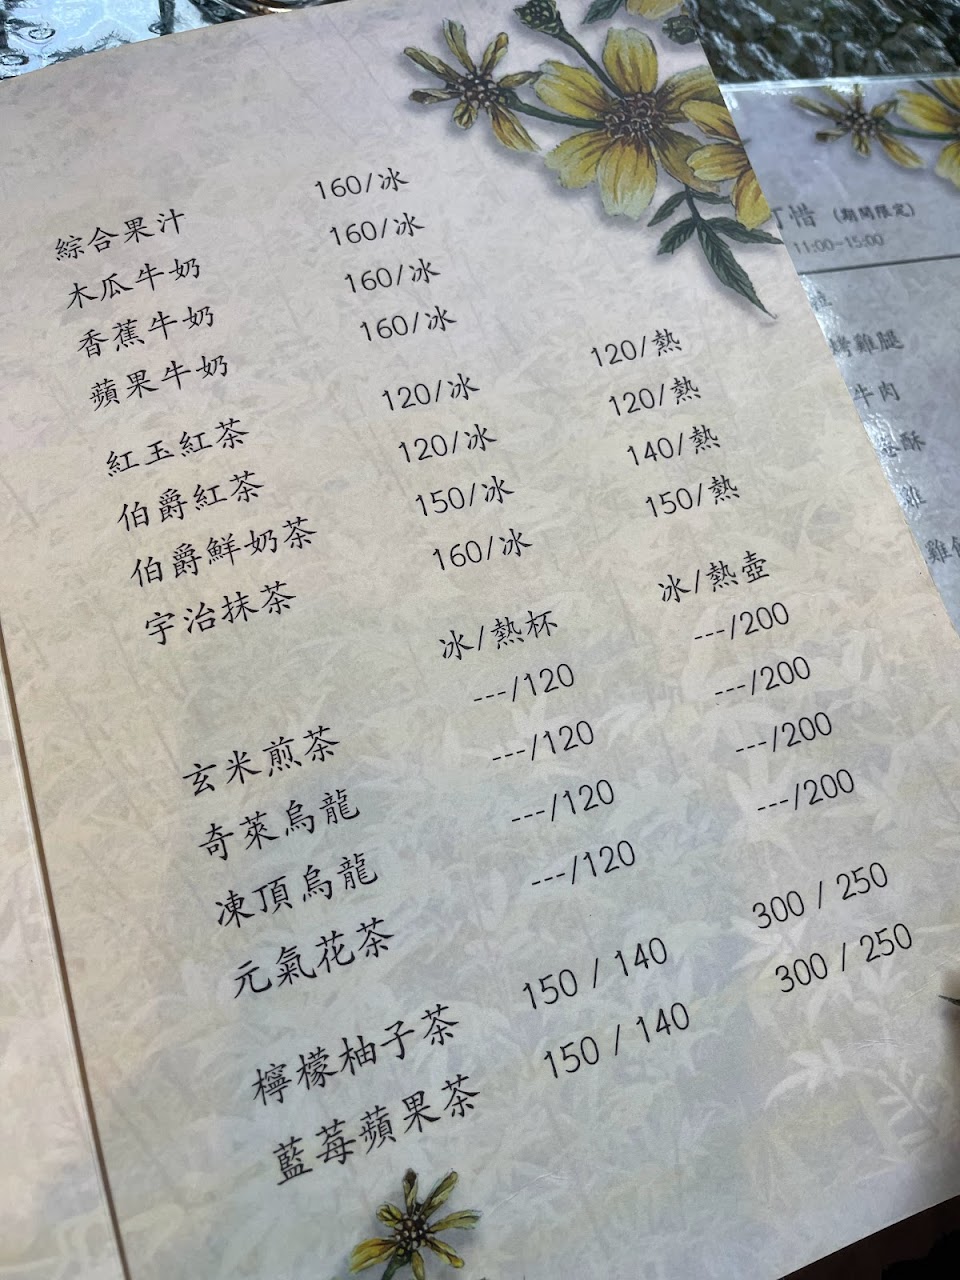 綜合果汁 160/冰
木瓜牛奶 160/冰
香蕉牛奶 160/冰
蘋果牛奶 160/冰
紅玉紅茶 120/冰 120/熱
伯爵紅茶 120/冰 120/熱
伯爵鮮奶茶 150/冰 140/熱
宇治抹茶 160/冰 150/熱
冰/熱杯 冰/熱壺
玄米煎茶 ---/120 ---/200
奇萊烏龍 ---/120 ---/200
凍頂烏龍 ---/120 ---/200
元氣花茶 ---/120 ---/200
檸檬柚子茶 150 / 140 300 / 250
藍莓蘋果茶 150 / 140 300 / 250
惜 (期間限定)
11:00~15:00
烤雞腿
牛肉
酥
雞
雞